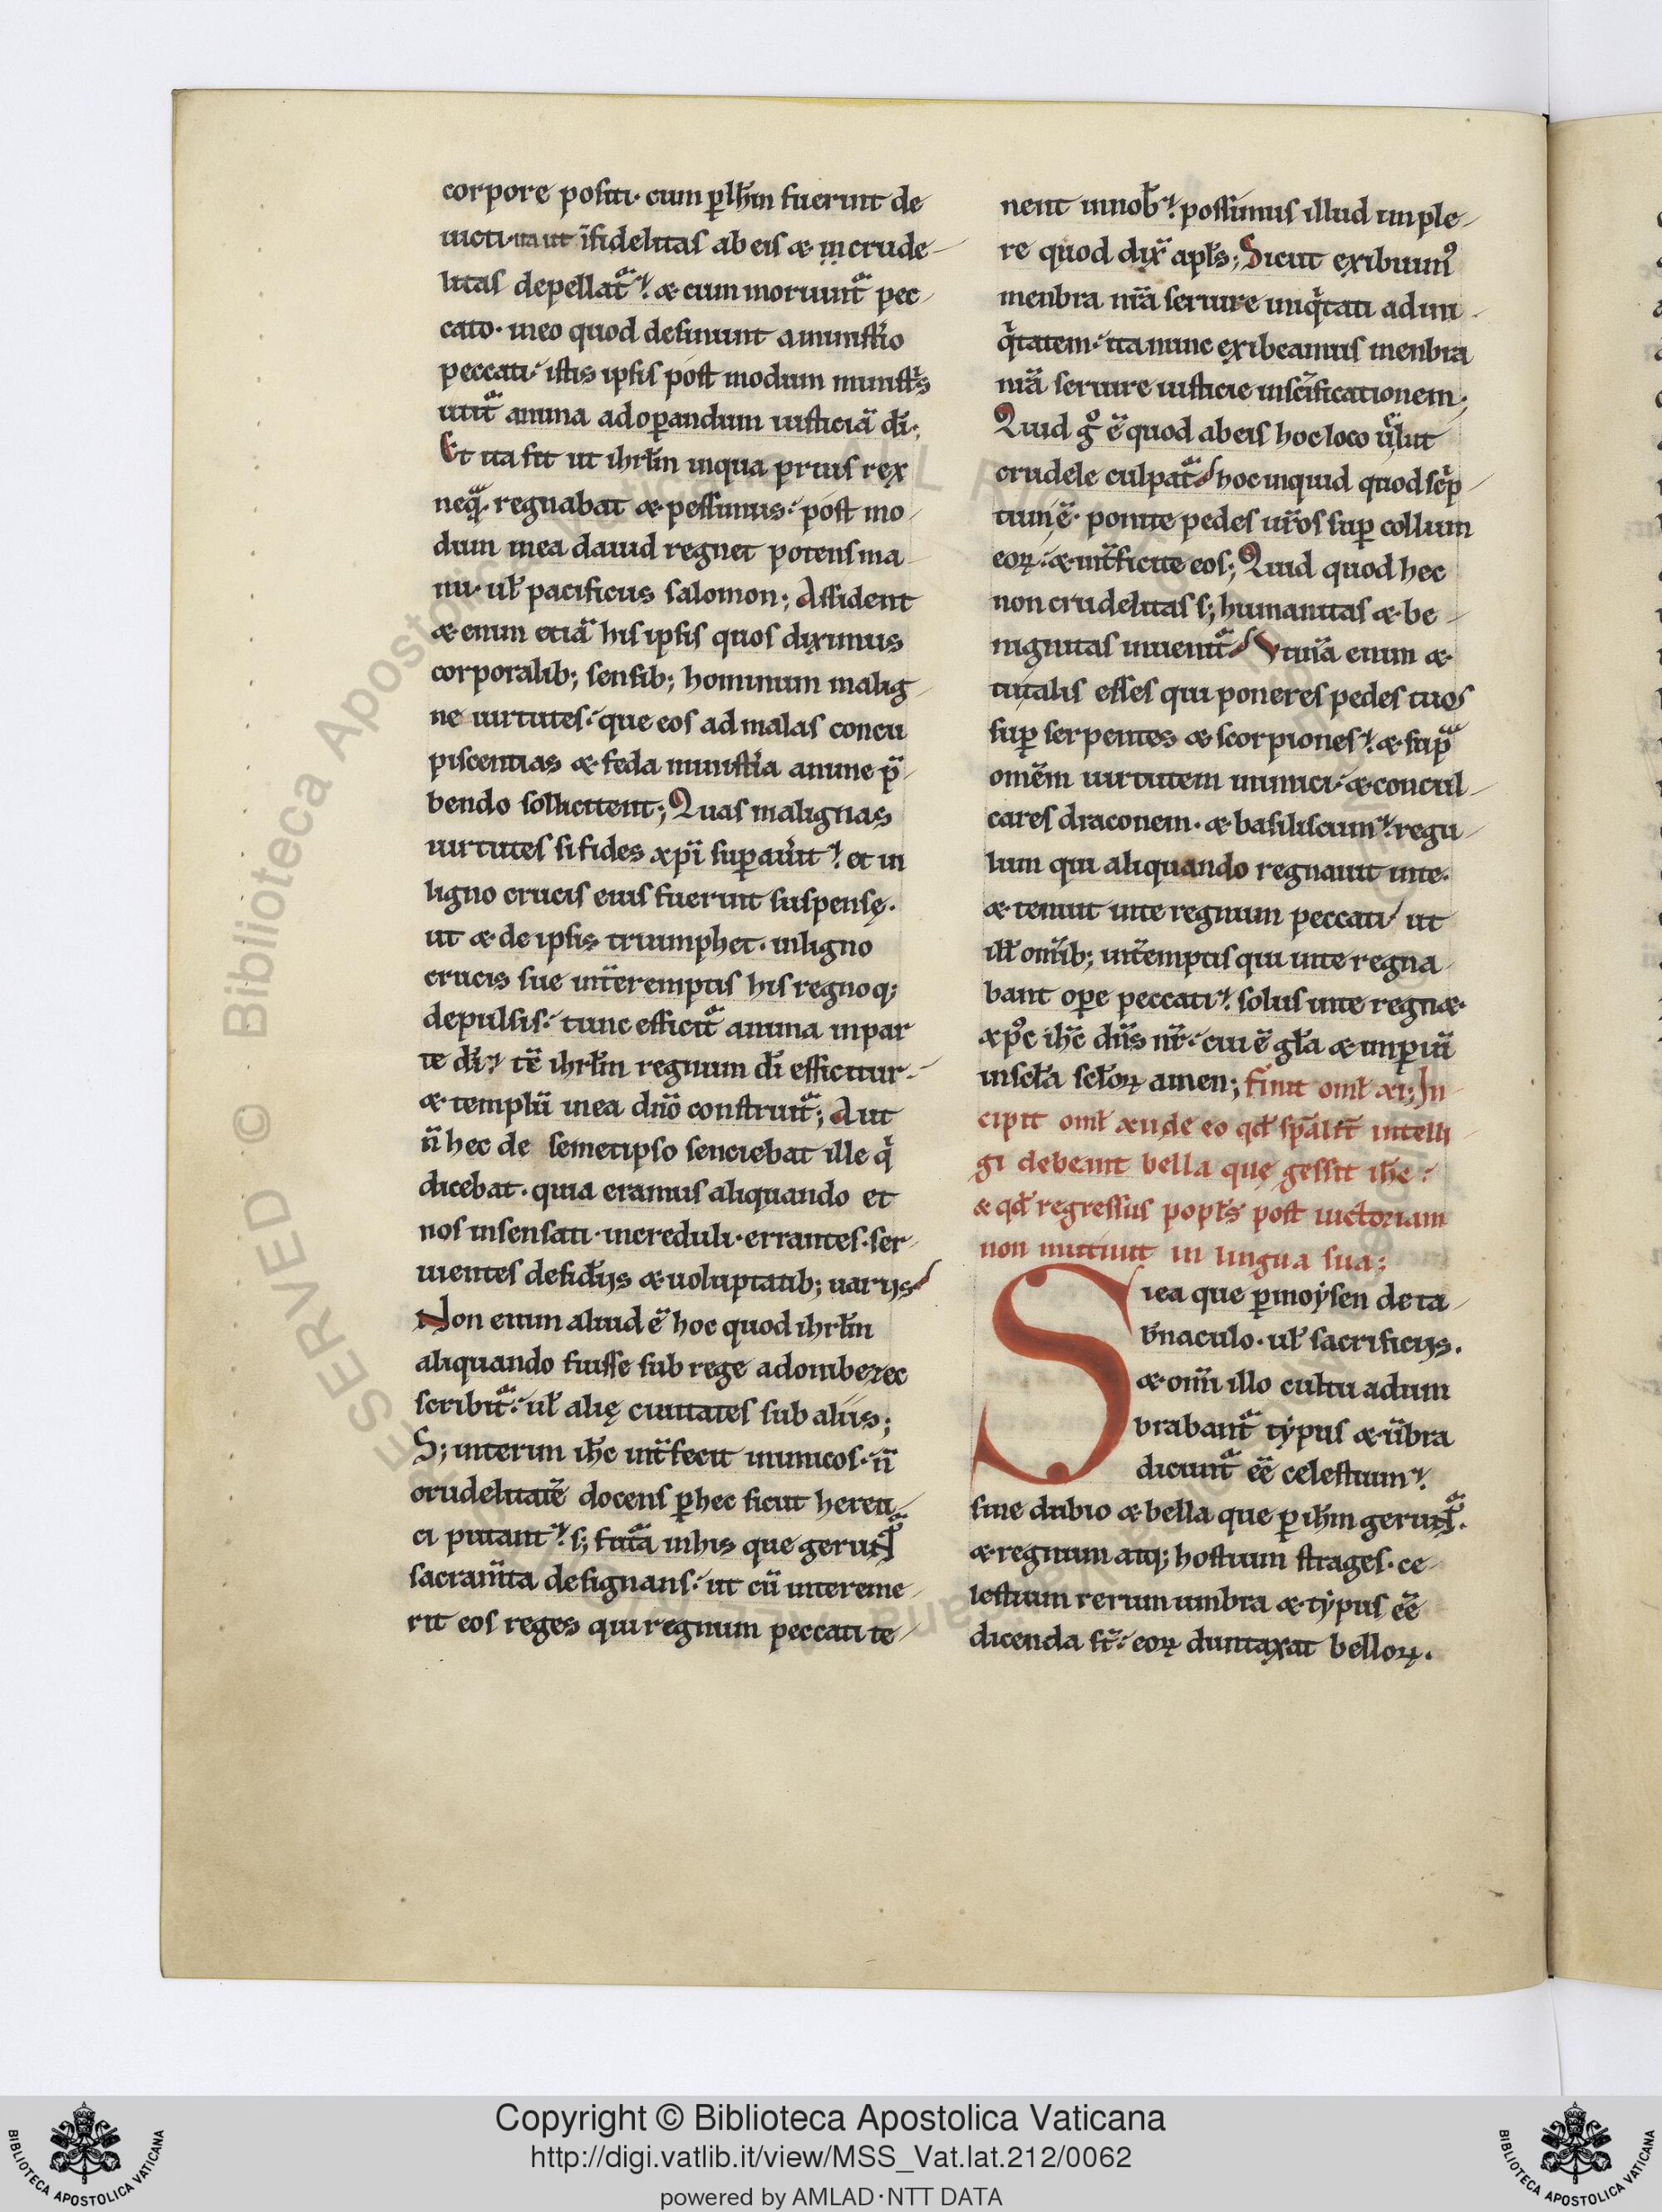 corpore positi· cum p̱ ih̅m fuerint de
uicti· ita ut ĩfidelitas ab eis & in crude-
litas depellat᷑· & cum moriunt᷑ pec-
cato· in eo quod desinunt a ministĩo
peccati· istis ipsis post modum ministͥs
utit᷑ anima ad oꝑandum iusticiã dĩ;
Et ita fit ut ihrl̃m in qua prius rex
neqͣ· regnabat & pessimus· post mo-
dum in ea dauid regnet potens ma-
nu· ul̃ pacificus salomon; Assident
& enim etiã his ipsis quos diximus
corporalib; sensib; hominum malig-
ne uirtutes· que eos ad malas concu
piscentias & feda ministĩa anime p̃-
bendo sollicitent; Quas malignas
uirtutes si fides xp̃i suꝑau̾it· et in
ligno crucis eius fuerint suspensę·
ut & de ipsis triumphet· in ligno
crucis sue int̃eremptis his regnoq;
depulsis· tunc efficit᷑ anima in par
te dĩ· tẽ ihrl̃m regnum dĩ efficitur-
& templũ in ea dñõ construit᷑; Aut
ñ hec de semetipso senciebat ille qͥ
dicebat· quia eramus aliquando et
nos insensati· increduli· errantes· ser-
uientes desid̾ijs & uoluptatib; uarijs
Non enim aliud ẽ hoc quod ihrl̃m
aliquando fuisse sub rege adombezec
scribit᷑· ul̃ alię ciuitates sub aliis;
S; interim ih̃c int̃fecit inimicos· ñ
crudelitatẽ docens ꝑ hec sicut hereti-
ci putant· s; futͣa in his que gerunt᷑
sacram̃ta designans· ut cũ intereme-
rit eos reges qui regnum peccati te-
nent in nob̾· possimus illud imple-
re quod dix̃ apl̃s; Sicut exibuimꝰ
menbra nr̃a seruire iniqͥtati ad ini-
qͥtatem· ita nunc exibeamus menbra
nr̃a seruire iusticie in sc̃ificationem;
Quid gͦ ẽ quod ab eis hoc loco uͤlut
crudele culpat᷑ hoc inquid quod scͥp-
tum ẽ· ponite pedes ur̃os suꝑ collum
eoꝝ· & int̃ficite eos; Quid quod hec
non crudelitas s; humanitas & be-
nignitas inuenit᷑ Utinã enim &
tu talis esses qui poneres pedes tuos
suꝑ serpentes & scorpiones· & supͣ
omẽm uirtutem inimici· & concul-
cares draconem· & basiliscum· regu-
lum qui aliquando regnauit in te·
& tenuit in te regnum peccati ut
ill̃ om̃ib; int̃emptis qui in te regna-
bant oꝑe peccati· solus in te regn&·
xp̃c ih̃c dñs nr̃· cui ẽ gl̃a & imꝑiũ
in scl̃a scl̃oꝝ amen; finit oml̃ xi; In-
cipit oml̃ xii de eo qd̃ sp̃alit̃ intelli-
gi debeant bella que gessit ih̃c:
& qd̃ regressus popl̃s post uictoriam
non mutiuit in lingua sua;
SicA que ꝑ moysen de ta-
b̾naculo· ul̃ sacrificijs·
& om̃i illo cultu adum
brabant᷑ typus & ũbra
dicunt᷑ ẽẽ celestium·
sine dubio & bella que ꝑ ih̃m gerunt᷑·
& regnum atq; hostium strages· ce-
lestium rerum umbra & typus ẽẽ
dicenda st̃· eoꝝ duntaxat belloꝝ·
© Biblioteca Apostolica Vaticana
ALL RIGHTS RESERVED
Copyright © Biblioteca Apostolica Vaticana
http://digi.vatlib.it/view/MSS_Vat.lat.212/0062
powered by AMLAD·NTT DATA
BIBLIOTECA APOSTOLICA VATICANA
BIBLIOTECA APOSTOLICA VATICANA